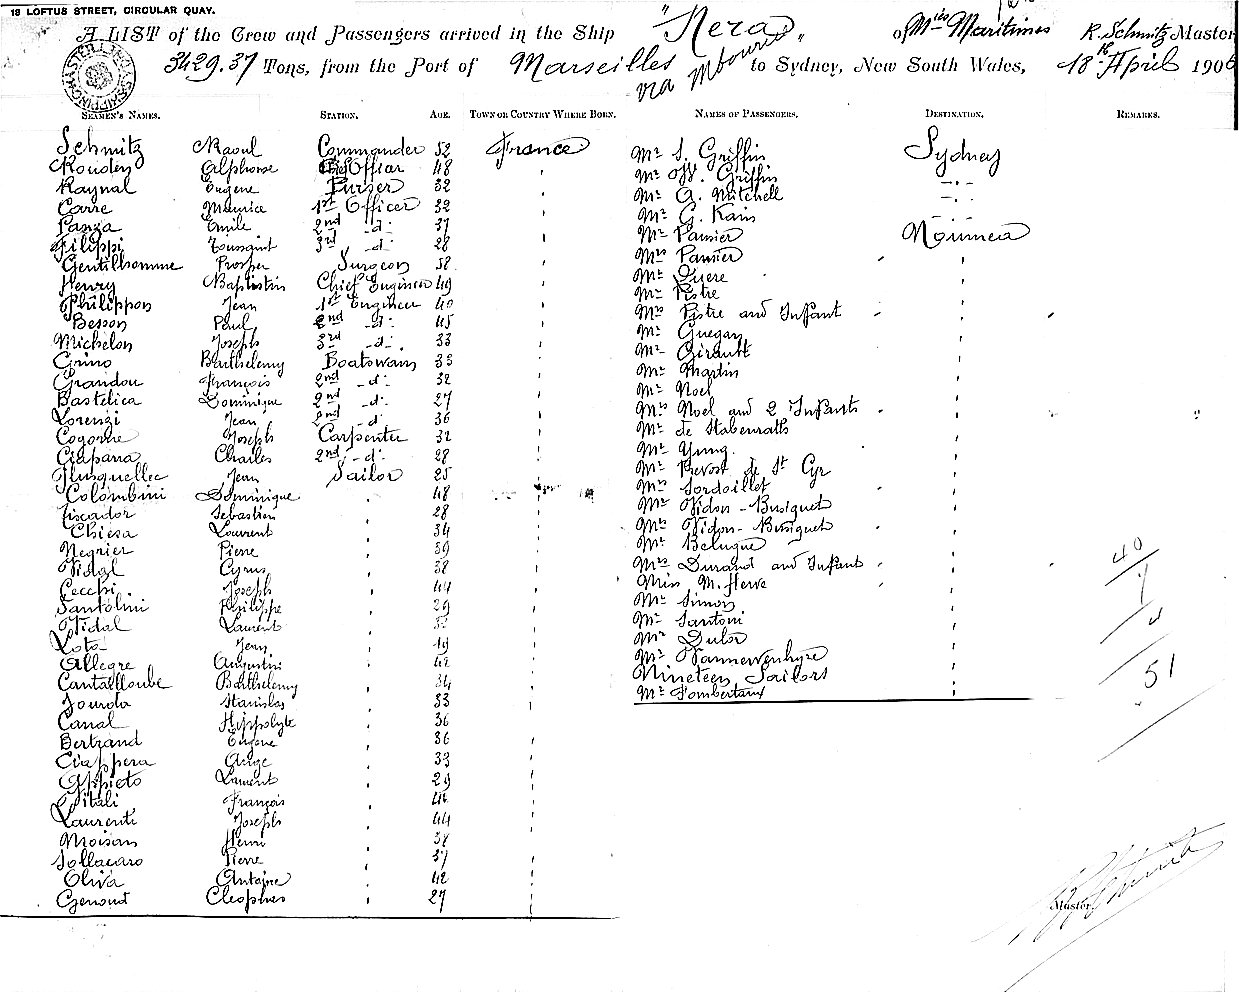 18 LOFTUS STREET, CIRCULAR QUAY.
A LIST of the Crew and Passengers arrived in the Ship "Nera" of Mies Maritimes R. Schmitz Master
3429.37 Tons, from the Port of Marseilles via to Sydney, New South Wales, 18th April 1906
SEAMEN'S NAMES. STATION. AGE. TOWN OR COUNTRY WHERE BORN. NAMES OF PASSENGERS. DESTINATION. REMARKS.
Schmitz Raoul Commander 52 France
Alphonse Officer 48
Raynal Eugene Purser 32
Carre Maurice 1st Officer 32
Panza Emile 2nd -d- 31
Filippi Toussaint 3rd -d- 28
Gentilhomme Prosper Surgeon 58
Henry Baptistin Chief Engineer 49
Philippon Jean 1st Engineer 40
Besson Paul 2nd -d- 45
Michelon Joseph 3rd -d- 33
Grino Barthelemy Boatswain 33
Grandou François 2nd -d- 32
Bastelica Dominique 2nd -d- 27
Lorenzi Jean 2nd -d- 36
Cogorne Joseph Carpenter 32
Ciapana Charles 2nd -d- 28
Plusquellec Jean Sailor 25
Colombini Dominique 48
Piscador Sebastien 28
Chiesa Laurent 34
Negrier Pierre 39
Vidal Cyrus 38
Cecchi Joseph 44
Santolini Philippe 29
Vidal Laurent
Loto Jean 49
Allegre Augustin 42
Cantalloube Barthelemy 34
Jourda Stanislas 33
Canal Hippolyte 36
Bertrand Eugene 36
Ciappera Ange 33
Appieto Laurent 29
Vitali François
Laurenti Joseph 44
Moisan Henri 38
Sollacaro Pierre 37
Oliva Antoine 42
Genout Cleophas 27
Mr S. Griffin Sydney
Mr W. Griffin -"-
Mr A. Mitchell -"-
Mr G. Kain -"-
Mr Panier Noumea
Mrs Panier
Mr Quere
Mr Pistre
Mrs Pistre and Infant
Mr Guegan
Mr Girault
Mr Martin
Mr Noel
Mrs Noel and 2 Infants
Mr de Stabenrath
Mr Yung
Mr Prevost de St Cyr
Mrs Sordoillet
Mr Vidon-Busiquet
Mrs Vidon-Busiquet
Mr Belugue
Mrs Durand and Infant
Miss M. Herve
Mr Simon
Mr Santoni
Mr Dulor
Mr Vannewenhyse
Nineteen Sailors
Mr Pombertaux
40
1
51
Master.